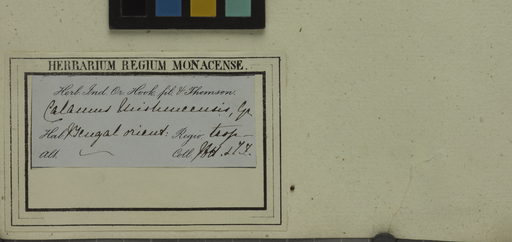 HERBARIUM REGIUM MONACENSE.
Herb. Ind. Or. Hook. fil. & Thomson.
Calamus
Hab. Bengal orient. Regio trop
Alt. Coll. J.D.H. & T.T.